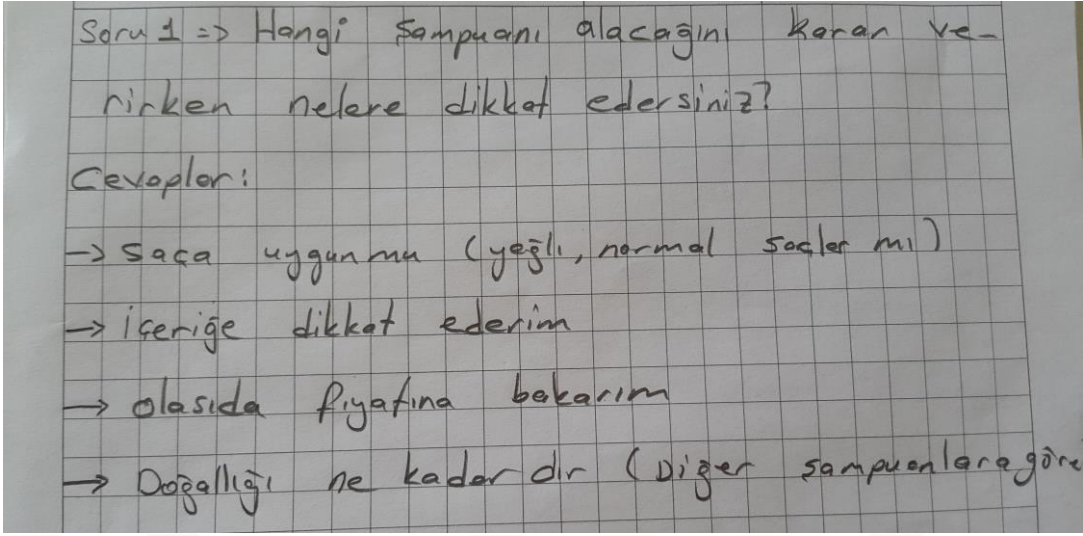 Soru 1 => Hangi şampuanı alacağını karar ve-
rirken nelere dikkat edersiniz?
Cevaplar:
→ saça uygunmu (yağlı, normal saçlar mı)
→ içeriğe dikkat ederim
→ olasıda fiyatına bakarım
→ Doğallığı ne kadardır (Diğer şampuanlara göre